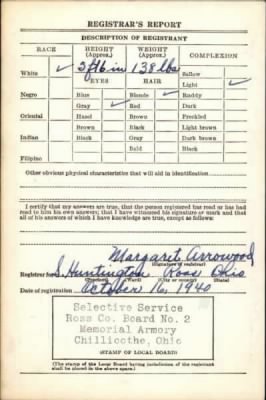 REGISTRAR'S REPORT
DESCRIPTION OF REGISTRANT
RACE HEIGHT (Approx.) WEIGHT (Approx.) COMPLEXION
White ✓ 5 ft 6 in 138 lbs Sallow
EYES HAIR Light ✓
Negro Blue Blonde ✓ Ruddy
Gray ✓ Red Dark
Oriental Hazel Brown Freckled
Brown Black Light brown
Indian Black Gray Dark brown
Bald Black
Filipino
Other obvious physical characteristics that will aid in identification
I certify that my answers are true, that the person registered has read or has had
read to him his own answers; that I have witnessed his signature or mark and that
all of his answers of which I have knowledge are true, except as follows:
Margaret Arrowood
(Signature of registrar)
Registrar for S. Huntington Ross Ohio
(Precinct) (Ward) (City or county) (State)
Date of registration October 16, 1940
Selective Service
Ross Co. Board No. 2
Memorial Armory
Chillicothe, Ohio
(STAMP OF LOCAL BOARD)
(The stamp of the Local Board having jurisdiction of the registrant
shall be placed in the above space.)